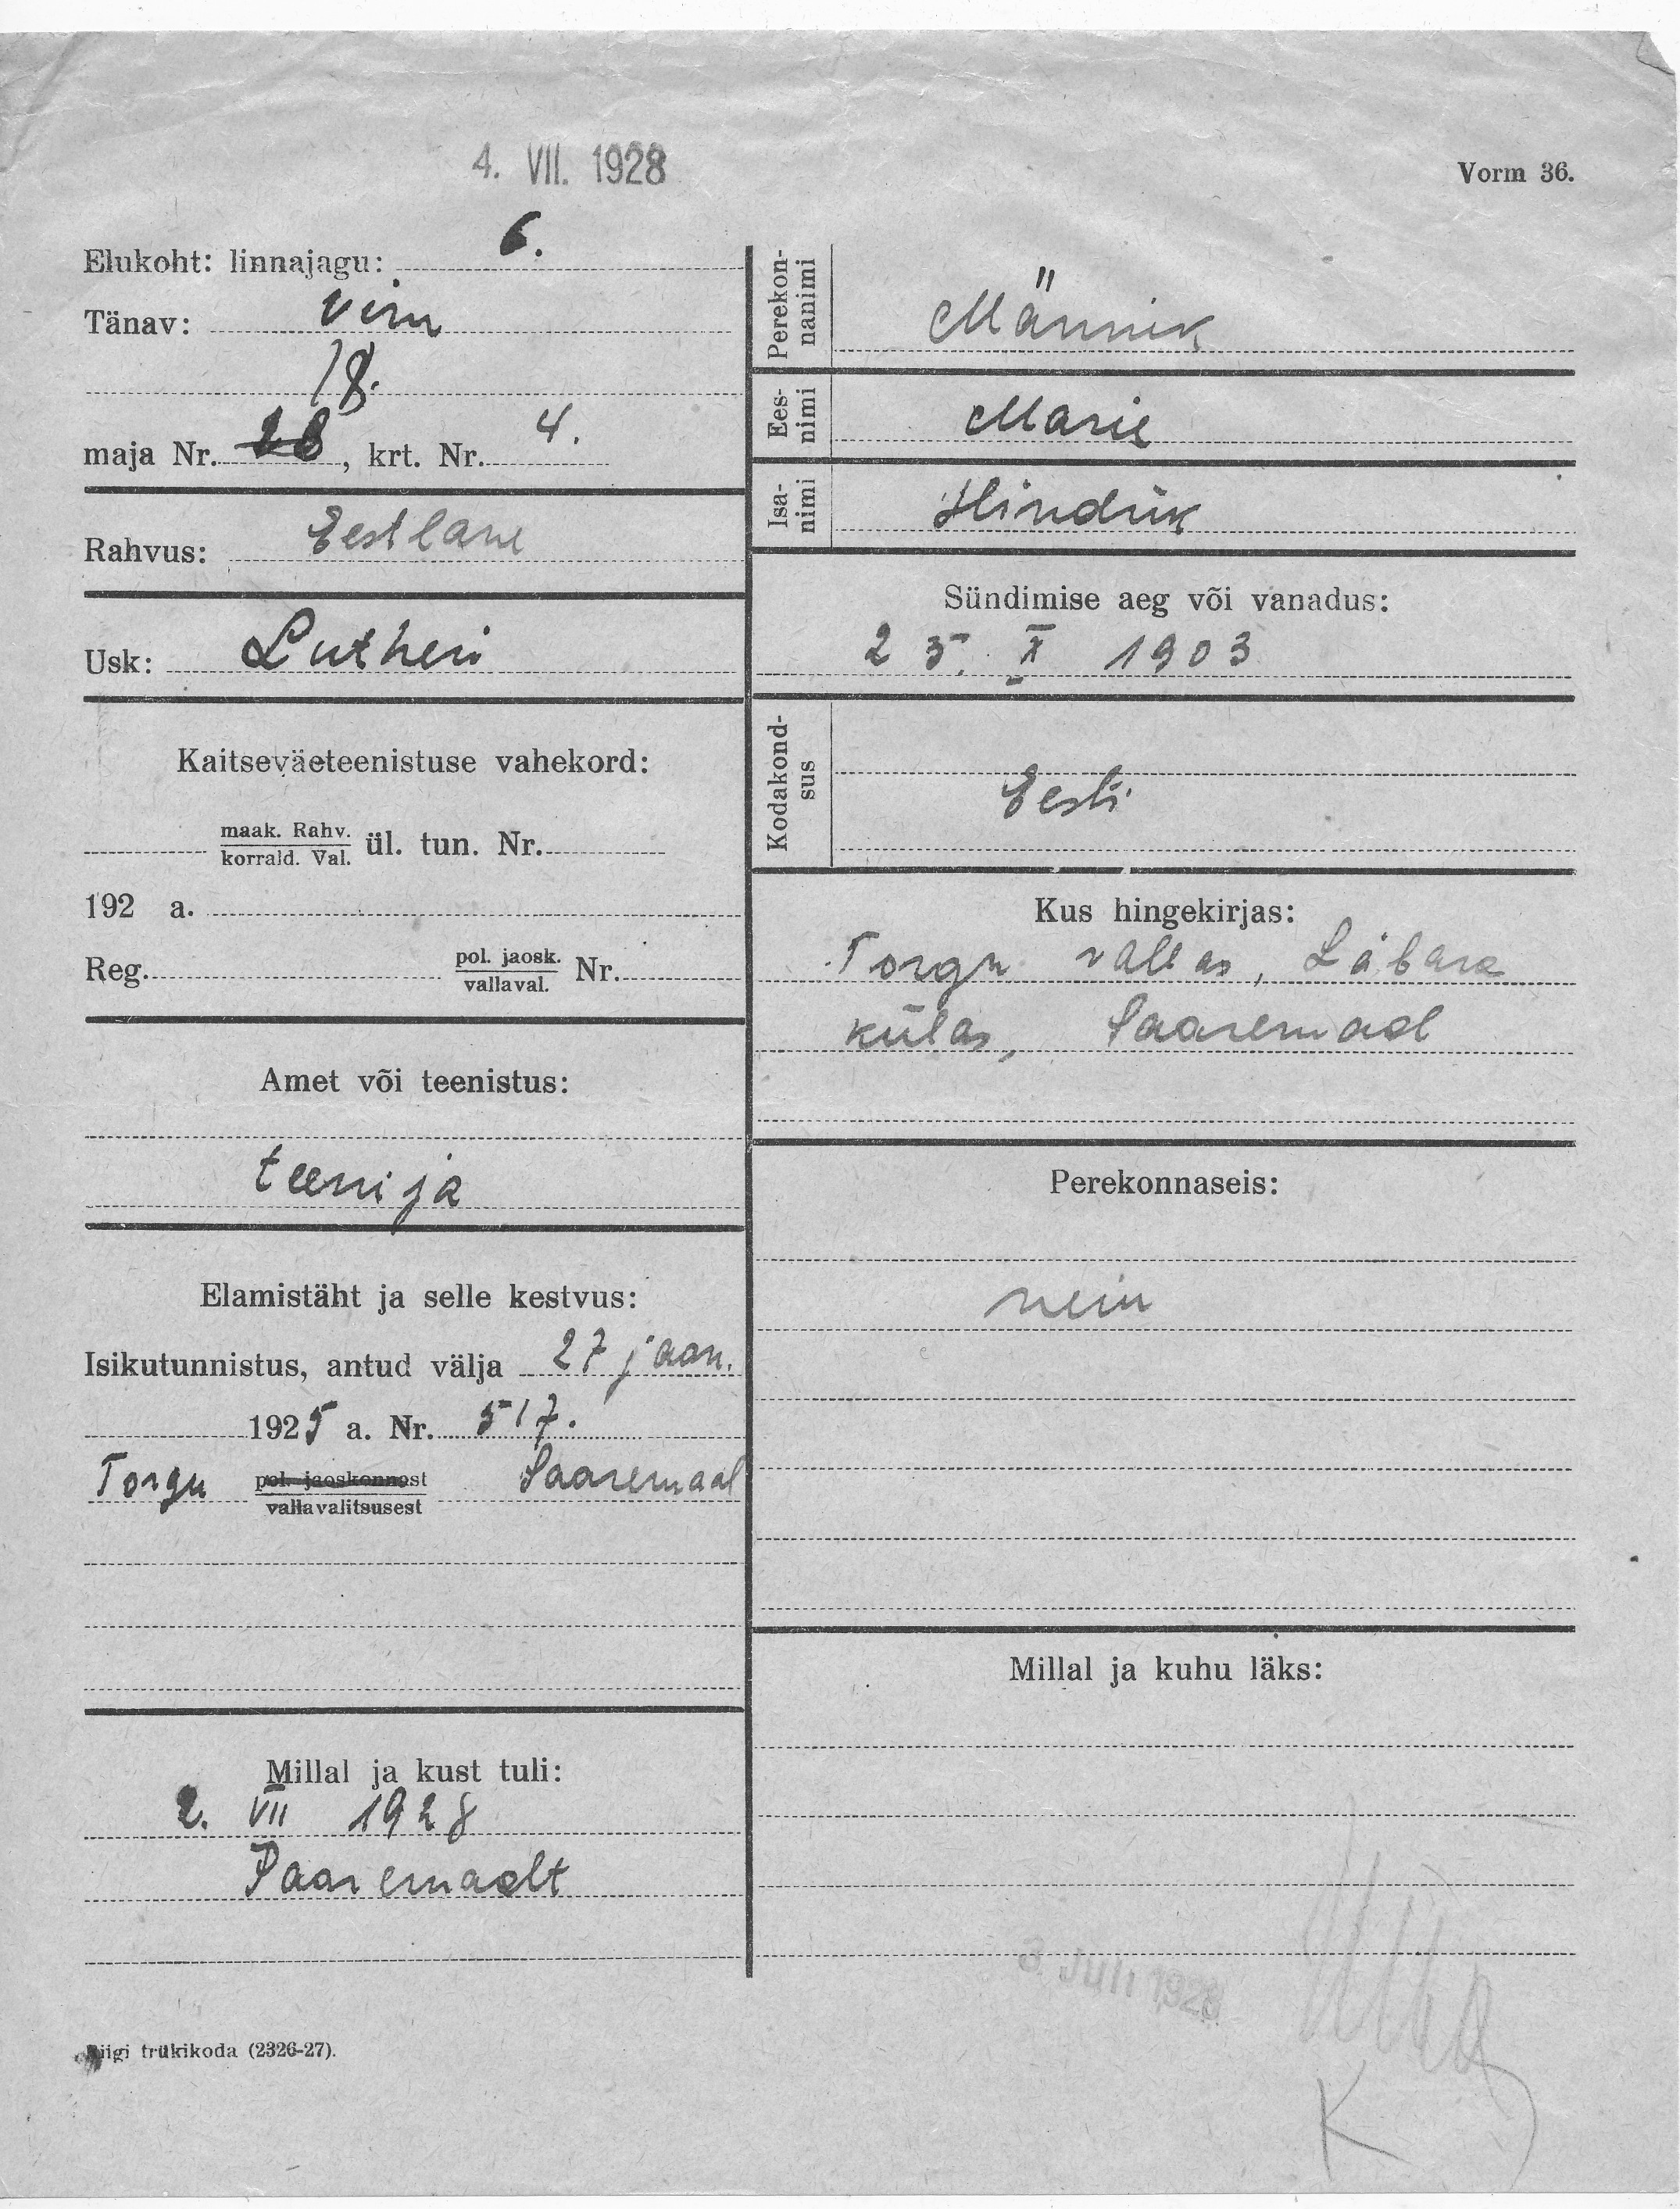 4. VII. 1928
Vorm 36.
Elukoht: linnajagu: 6.
Tänav: Viru
18.
maja Nr. 28, krt. Nr. 4.
Rahvus: Eestlane
Usk: Lutheri
Kaitseväeteenistuse vahekord:
maak. Rahv.
korrald. Val. ül. tun. Nr.
192 a.
Reg. pol. jaosk.
vallaval. Nr.
Amet või teenistus:
teenija
Elamistäht ja selle kestvus:
Isikutunnistus, antud välja 27 jaan.
1925 a. Nr. 517.
Torgu pol. jaoskonnast Saaremaal
vallavalitsusest
Millal ja kust tuli:
2. VII 1928
Saaremaalt
Riigi trükikoda (2326-27).
Perekon-
nanimi Männik
Ees-
nimi Marie
Isa-
nimi Hindrik
Sündimise aeg või vanadus:
25. X 1903
Kodakond-
sus Eesti
Kus hingekirjas:
Torgu vallas, Läbara
külas, Saaremaal
Perekonnaseis:
neiu
Millal ja kuhu läks:
3. Juli 1928
K